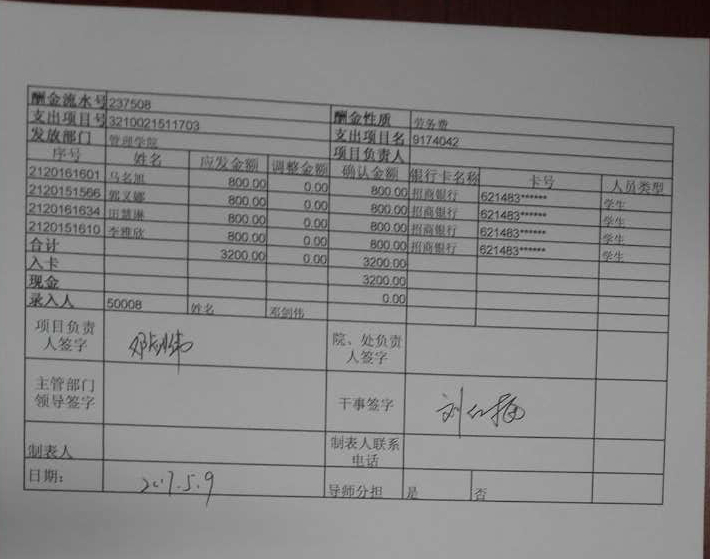 酬金流水号 237508 酬金性质 劳务费
支出项目号 3210021511703 支出项目名 9174042
发放部门 管理学院 项目负责人
序号 姓名 应发金额 调整金额 确认金额 银行卡名称 卡号 人员类型
2120161601 马名旭 800.00 0.00 800.00 招商银行 621483****** 学生
2120151566 郭义娜 800.00 0.00 800.00 招商银行 621483****** 学生
2120161634 田慧琳 800.00 0.00 800.00 招商银行 621483****** 学生
2120151610 李雅欣 800.00 0.00 800.00 招商银行 621483****** 学生
合计 3200.00 0.00 3200.00
入卡 3200.00
现金 0.00
录入人 50008 姓名 邓剑伟
项目负责
人签字 邓剑伟 院、处负责
人签字
主管部门
领导签字 干事签字 刘
制表人 制表人联系
电话
日期: 2017.5.9 导师分担 是 否